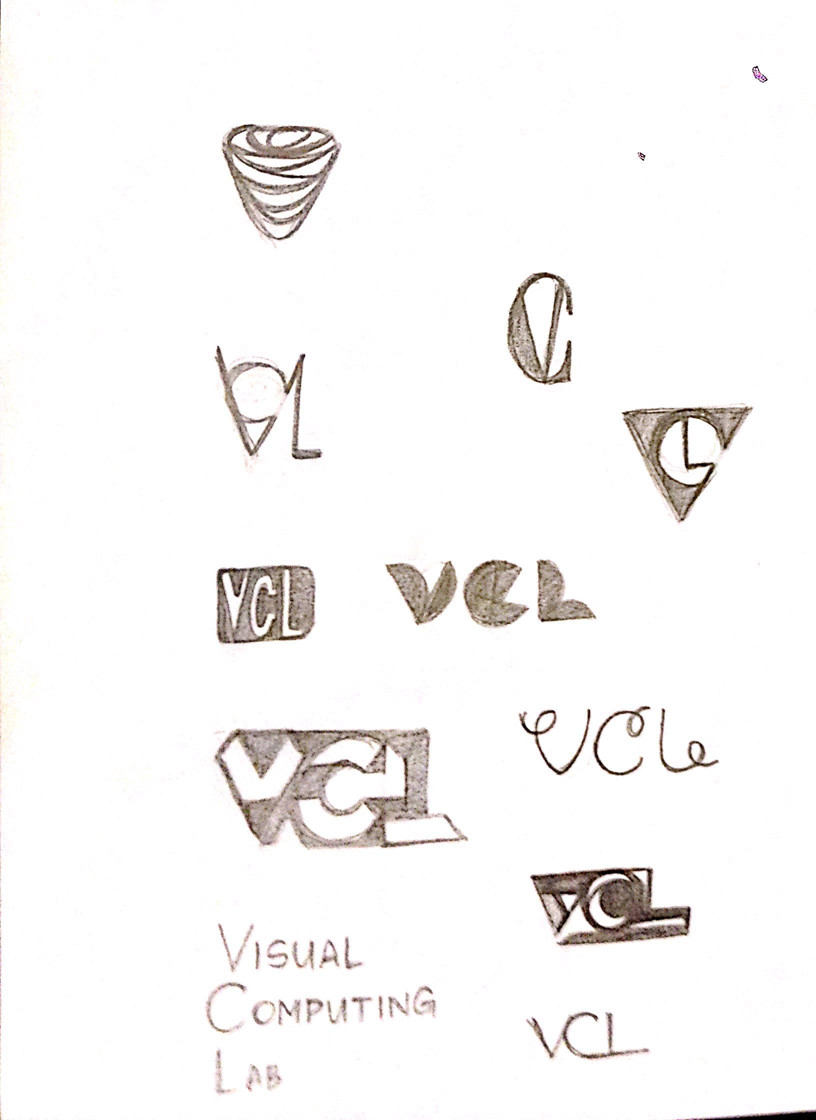 VCL
VC
VCL
VCL
VCL
VCL
VCL
VCL
VISUAL
COMPUTING
LAB
VCL